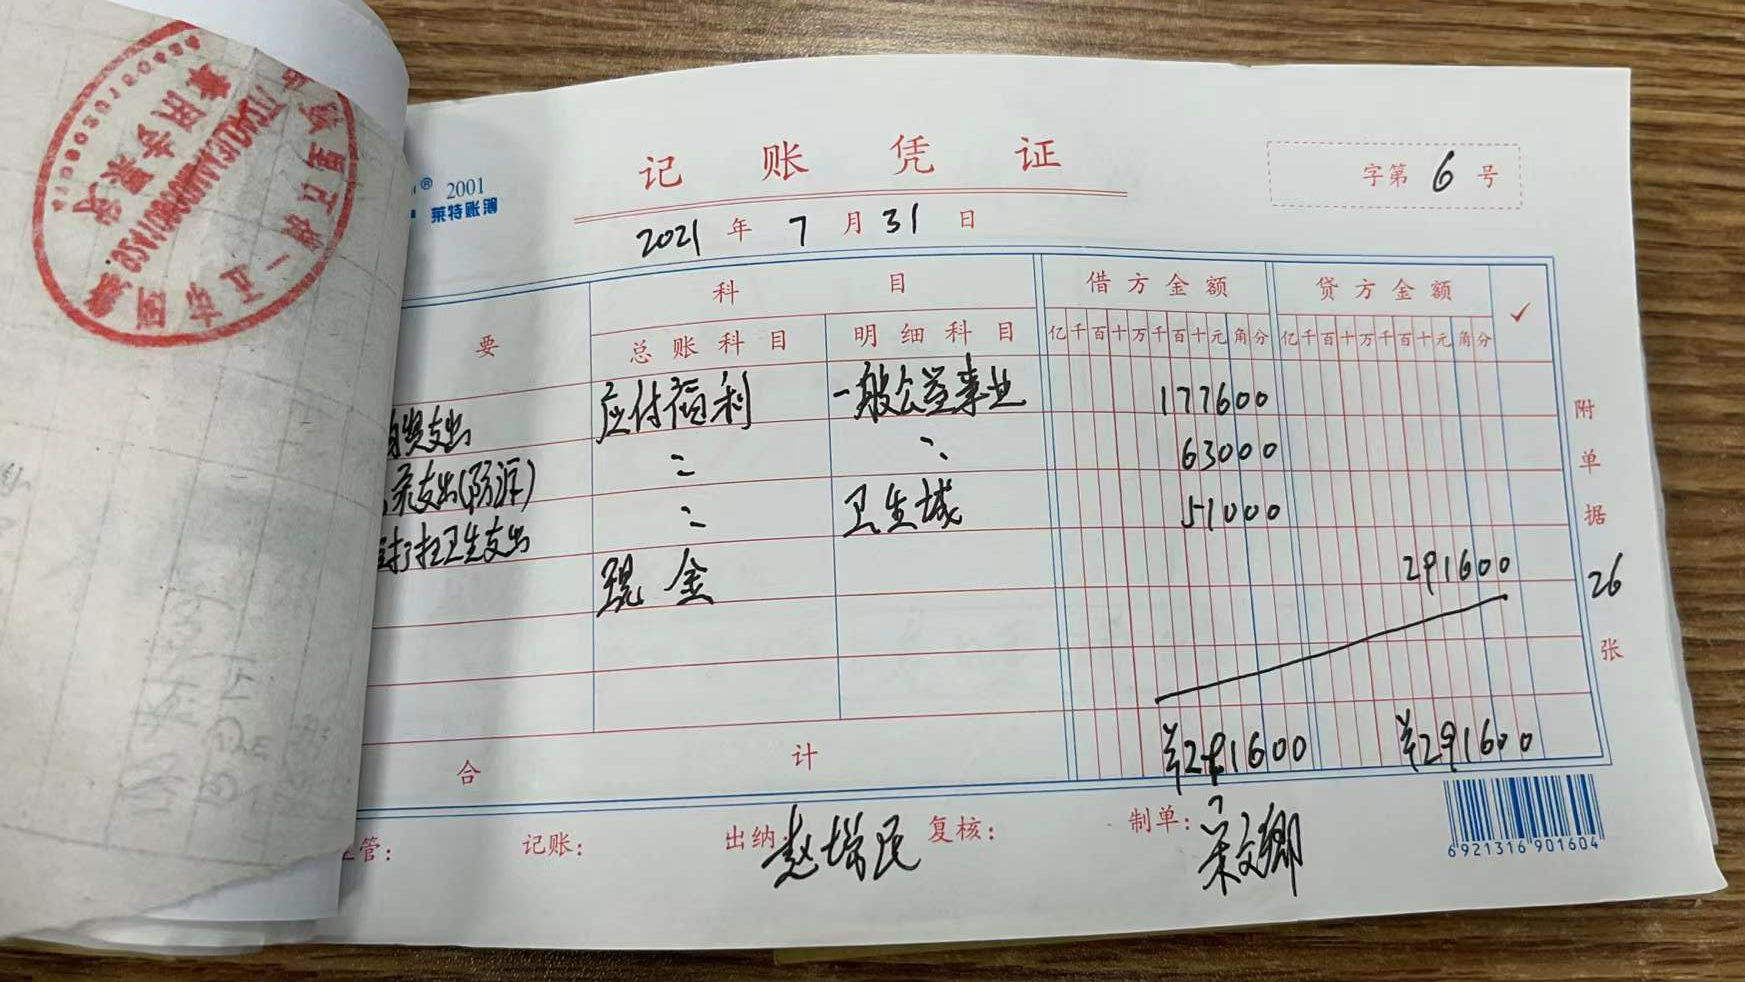 记账凭证
字第 6 号
® 2001
莱特账簿
2021 年 7 月 31 日
要 科目 借方金额 贷方金额 ✓
总账科目 明细科目 亿千百十万千百十元角分 亿千百十万千百十元角分
支出 应付福利 一般公益事业 177600
支出(防汛) 〃 〃 63000
打扫卫生支出 〃 卫生城 51000
现金 291600
合计 ¥291600 ¥291600
附单据 26 张
管: 记账: 出纳: 赵增民 复核: 制单: 宋文卿
6921316901604